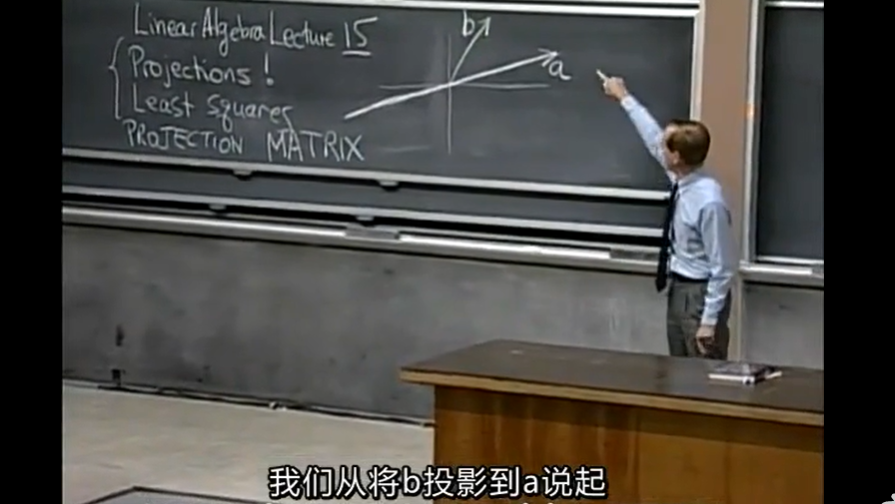 Linear Algebra Lecture 15
Projections!
Least squares
PROJECTION MATRIX
b
a
我们从将b投影到a说起